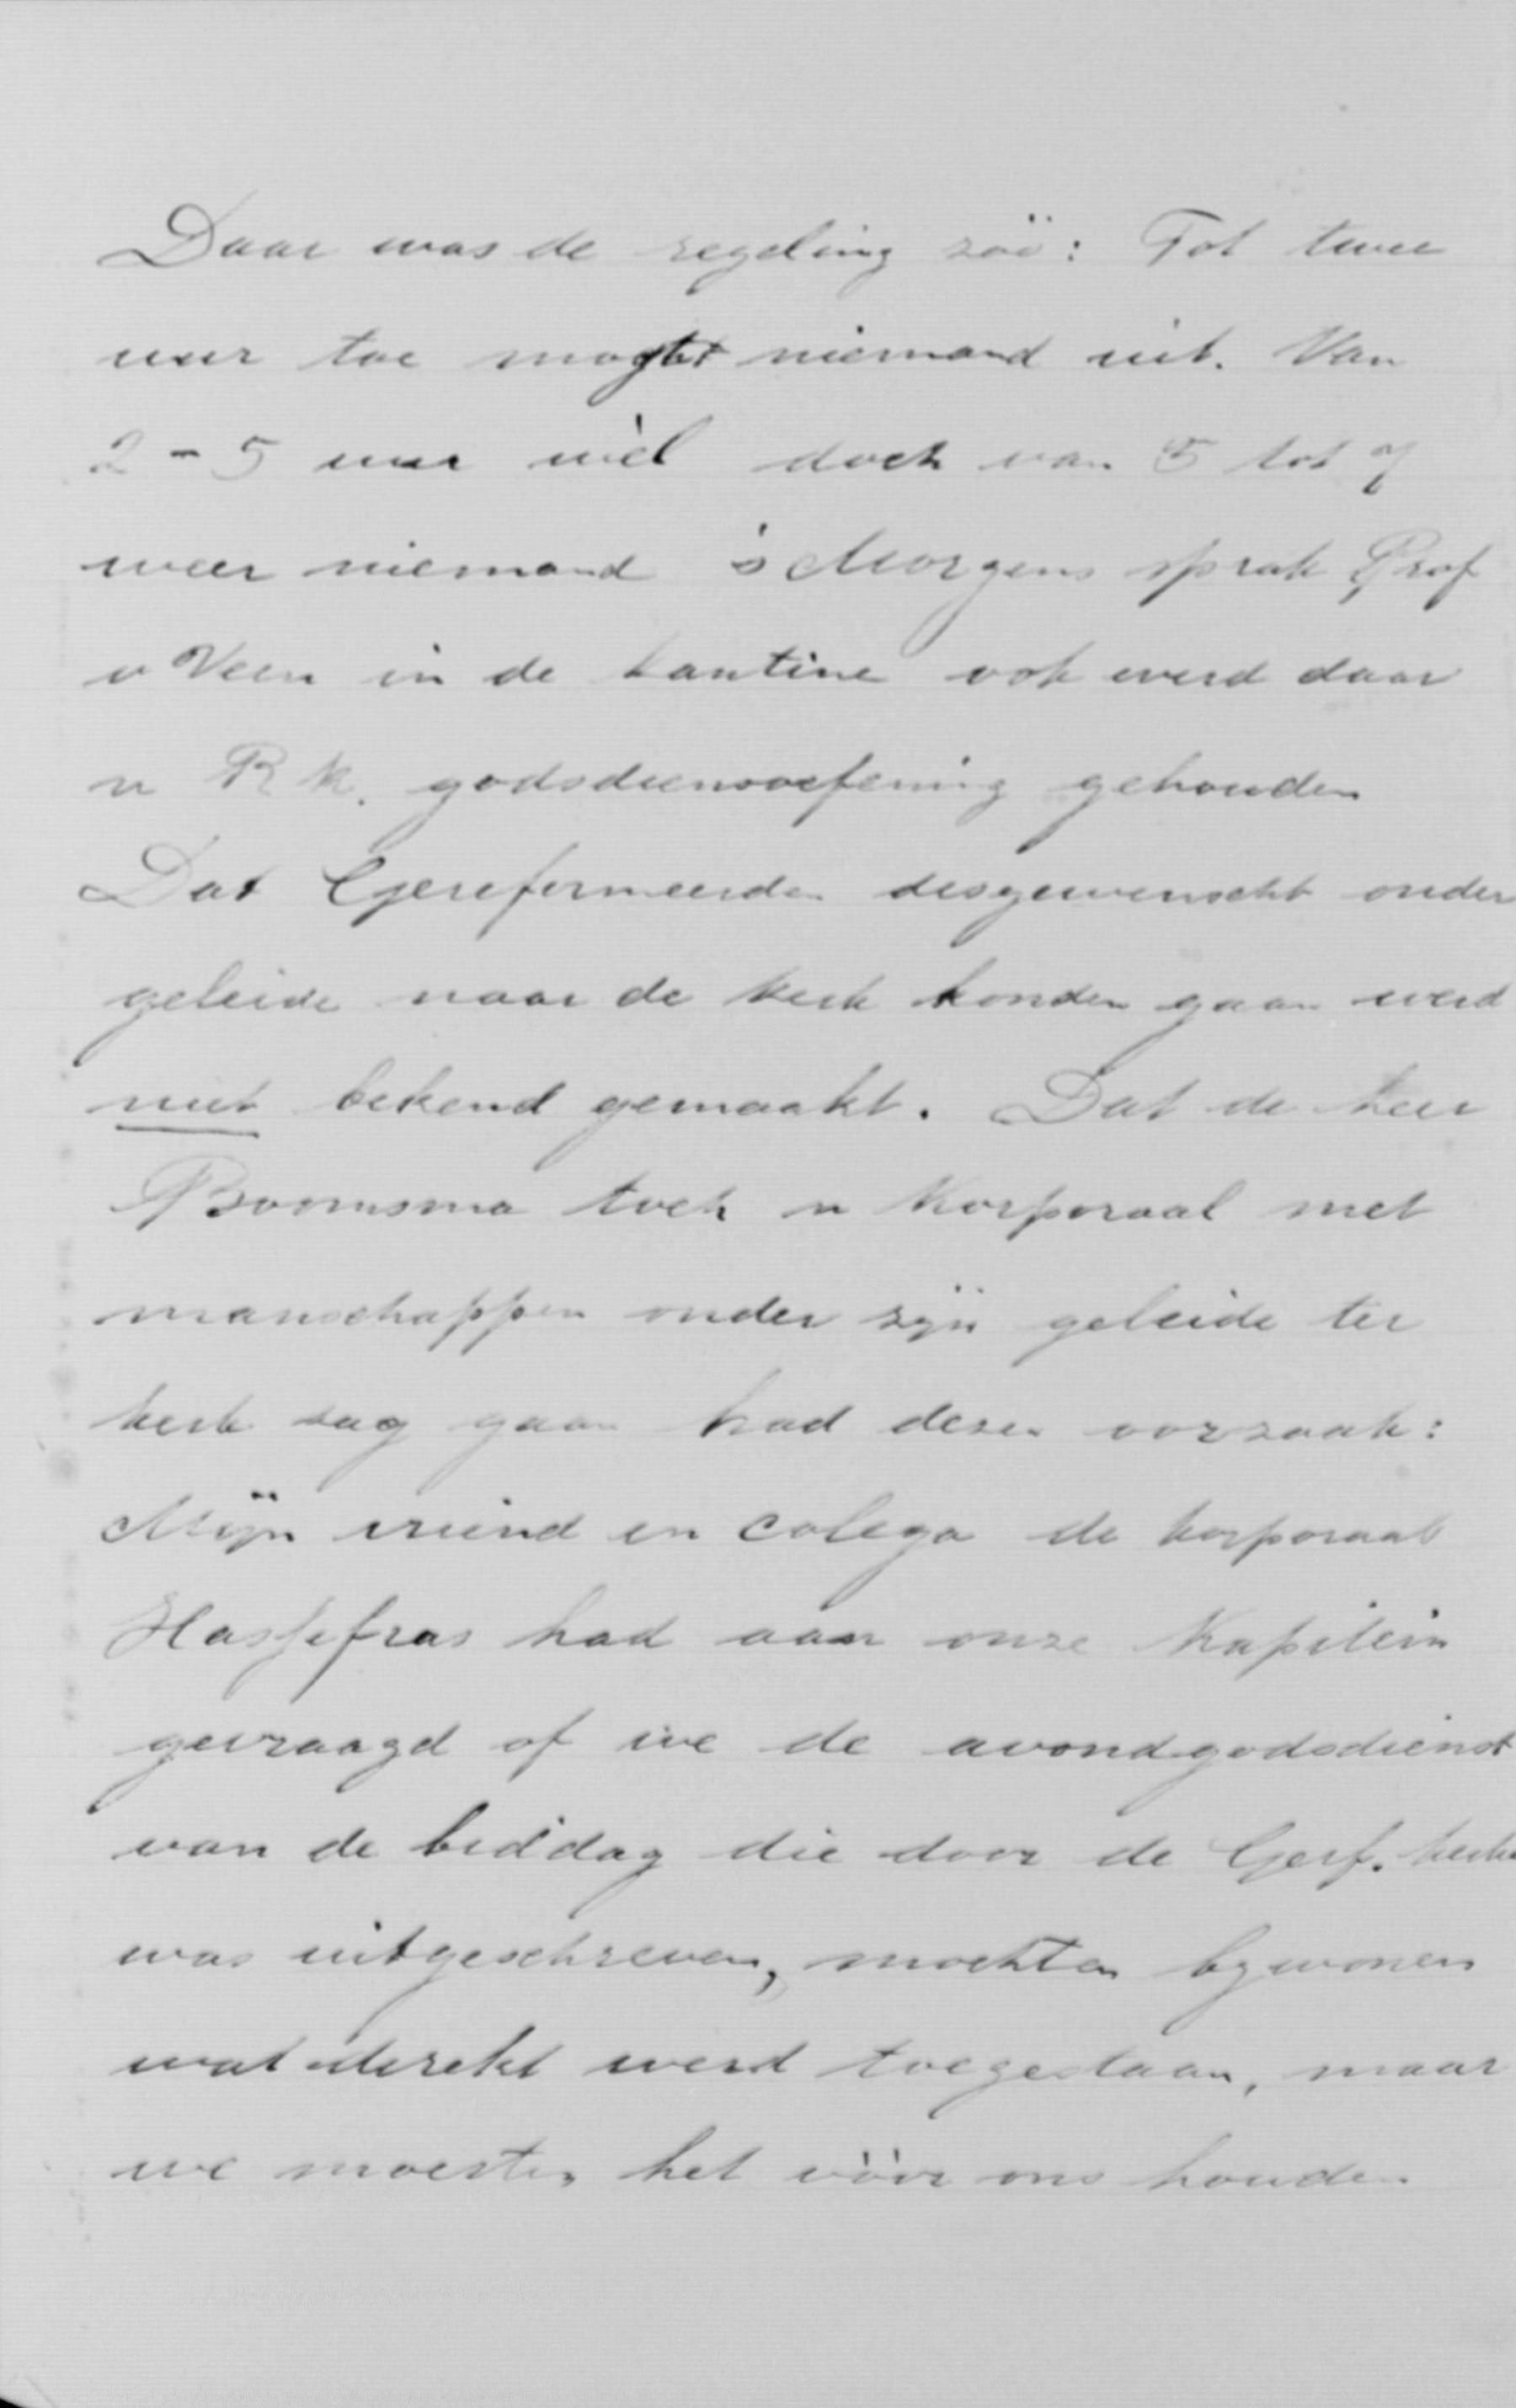 Daar was de regeling zóó: Tot twee
uur toe mocht niemand uit. Van
2-5 uur wèl doch van 5 tot 7
weer niemand 's Morgens sprak Prof
v Veen in de kantine ook werd daar
n R k. godsdiensoefening gehouden
Dat Gereformeerden desgewenscht onder
geleide naar de kerk konden gaan werd
niet bekend gemaakt. Dat de heer
Boomsma toch n Korporaal met
manschappen onder zijn geleide ter
kerk zag gaan had dezen oorzaak:
Mijn vriend en colega de korporaal
had aan onze Kapitein
gevraagd of we de avondgodsdienst
van de biddag die door de Geref. kerken
was uitgeschreven, mochten bijwonen
wat direkt werd toegestaan, maar
we moesten het vóór ons houden